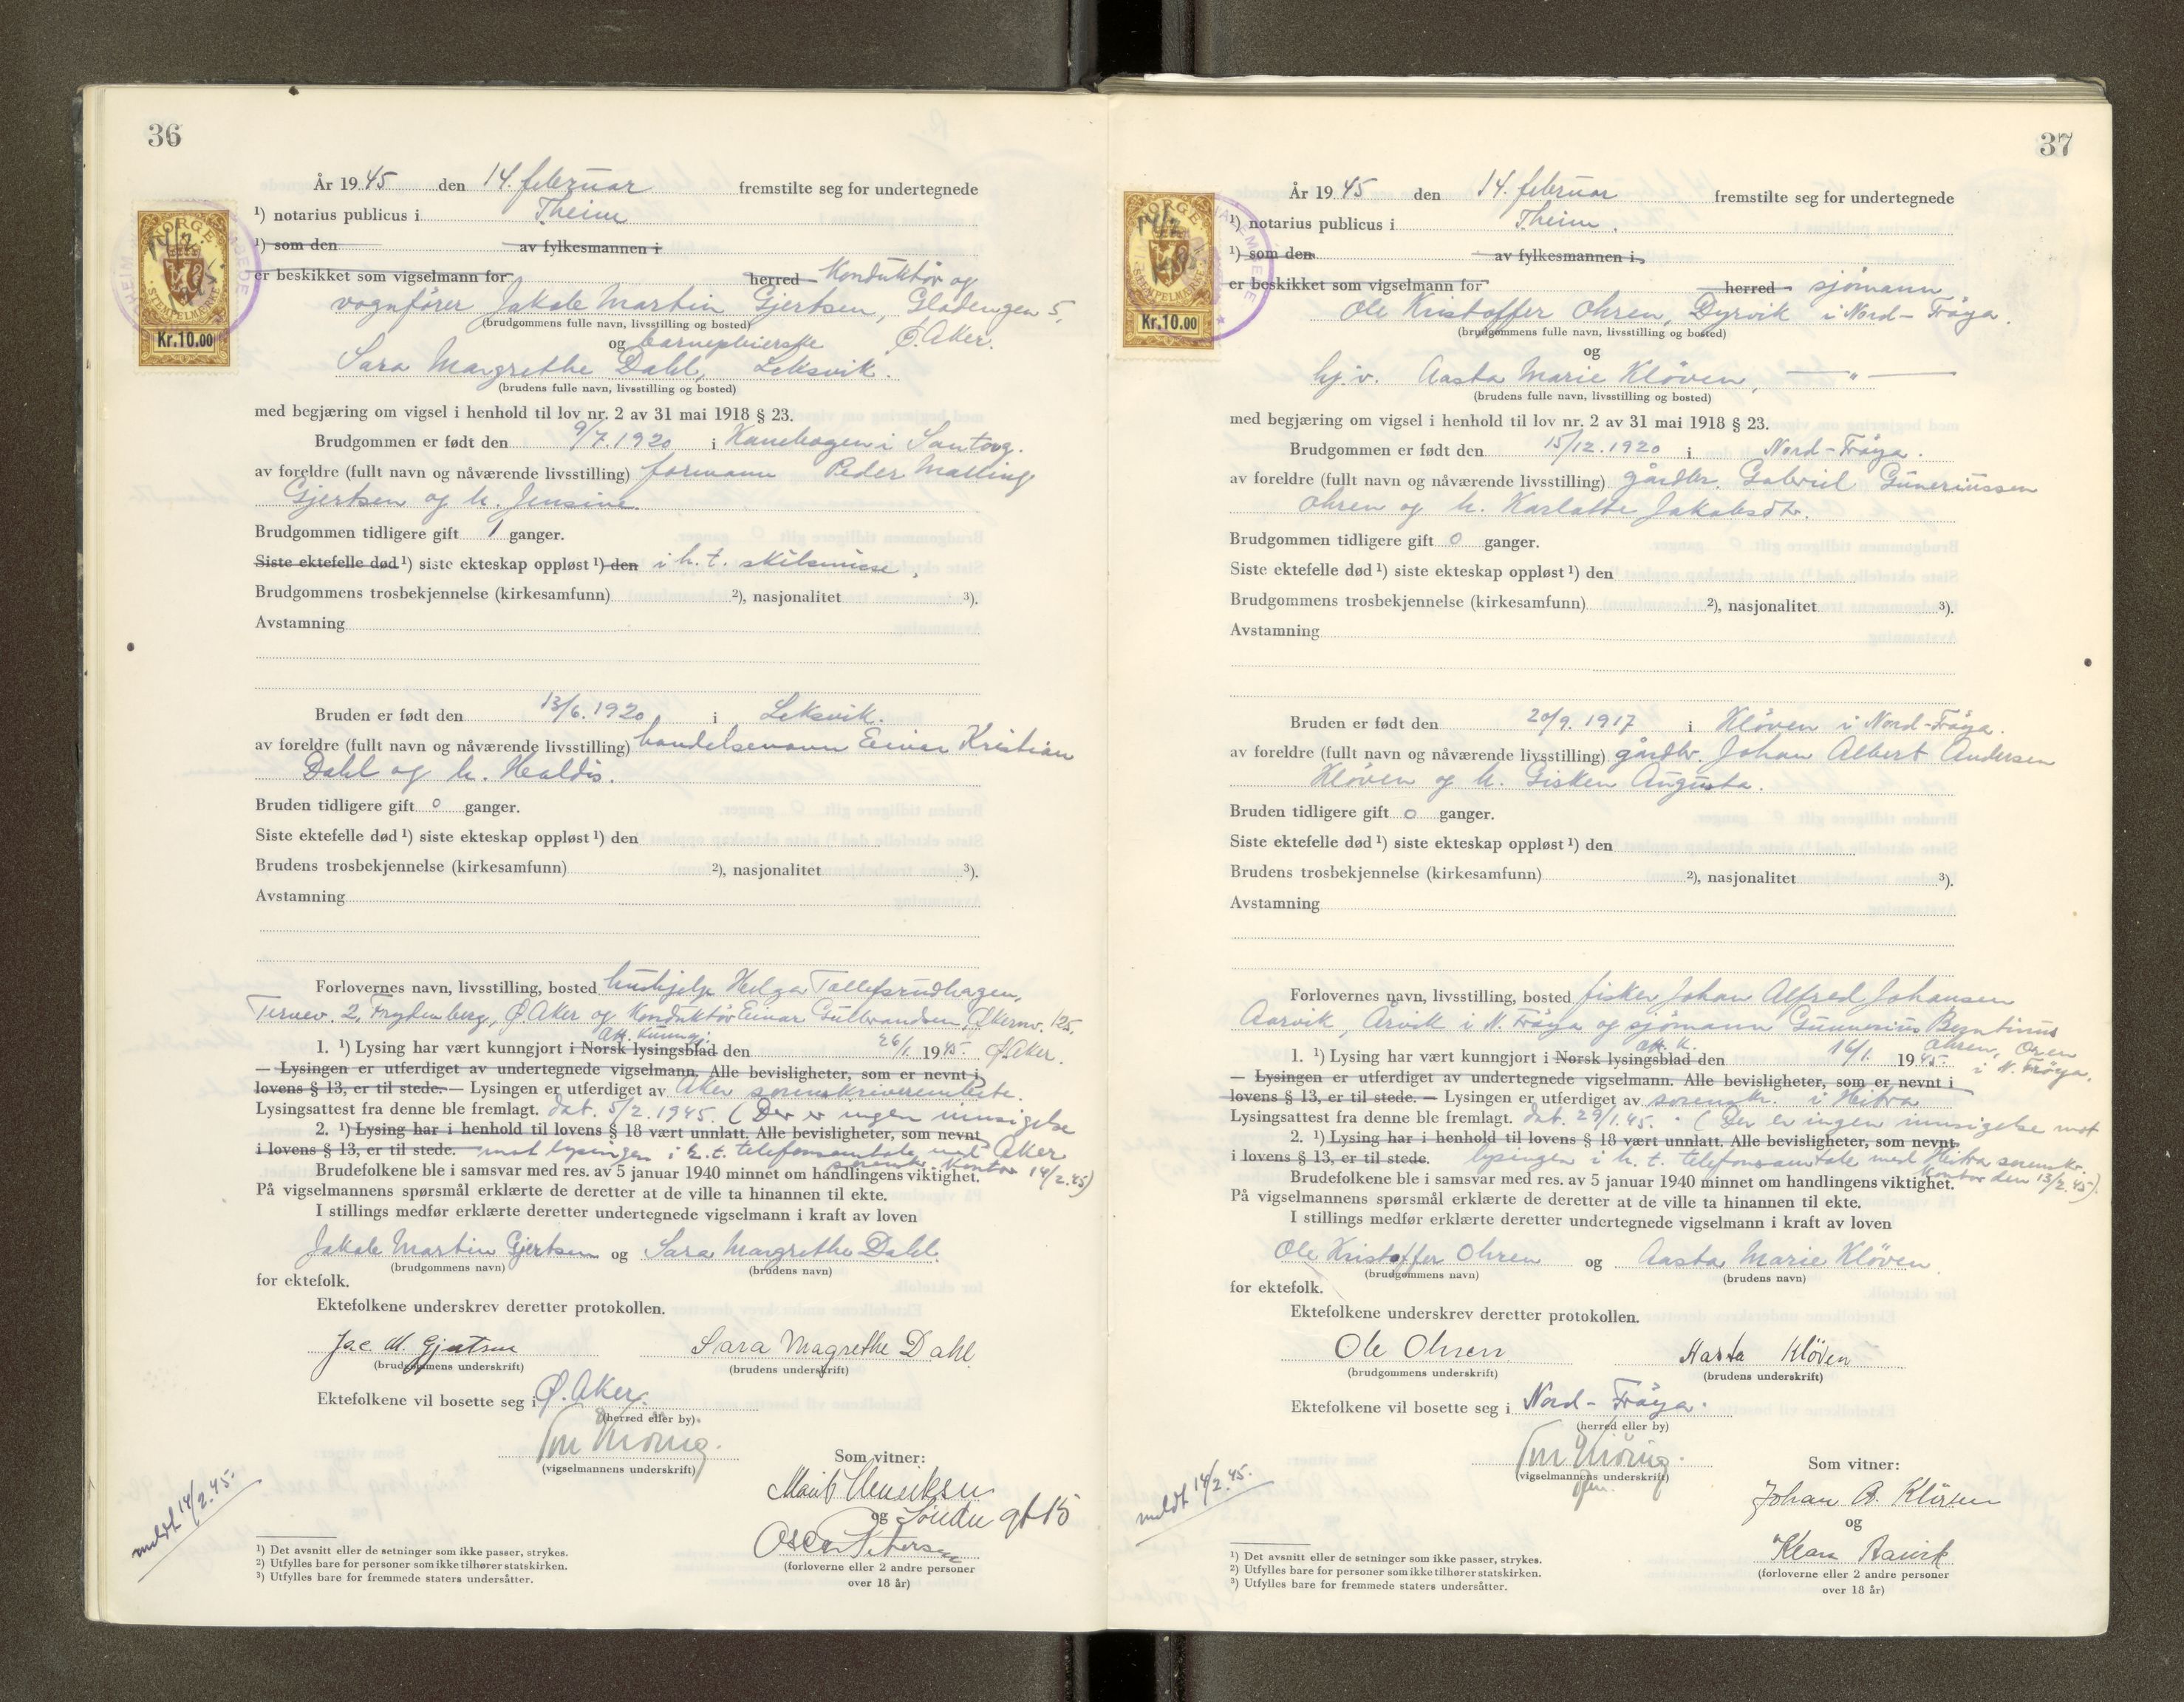 36
År 1945 den 14. februar fremstilte seg for undertegnede
¹) notarius publicus i Theim
¹) som den av fylkesmannen i
er beskikket som vigselmann for herred Konduktör og
vognförer Jakob Martin Gjertsen, Gladengen 5,
(brudgommens fulle navn, livsstilling og bosted)
og barnepleierske Ø. Aker.
Sara Margrethe Dahl, Leksvik.
(brudens fulle navn, livsstilling og bosted)
med begjæring om vigsel i henhold til lov nr. 2 av 31 mai 1918 § 23.
Brudgommen er født den 9/7.1920 i Kanebogen i Santorg.
av foreldre (fullt navn og nåværende livsstilling) formann Peder Malling
Gjertsen og h. Jensine
Brudgommen tidligere gift 1 ganger.
Siste ektefelle død ¹) siste ekteskap oppløst ¹) den i h. t. skilsmisse,
Brudgommens trosbekjennelse (kirkesamfunn) ²), nasjonalitet ³).
Avstamning
Bruden er født den 13/6.1920 i Leksvik.
av foreldre (fullt navn og nåværende livsstilling) handelsmann Einar Kristian
Dahl og h. Haldis.
Bruden tidligere gift 0 ganger.
Siste ektefelle død ¹) siste ekteskap oppløst ¹) den
Brudens trosbekjennelse (kirkesamfunn) ²), nasjonalitet ³).
Avstamning
Forlovernes navn, livsstilling, bosted hushjelp Helga Tollefsrudhagen,
Ternev. 2, Frydenberg, Ø. Aker og Konduktör Einar Gulbrandsen, Økernv. 125,
att. kunngj:
1. ¹) Lysing har vært kunngjort i Norsk lysingsblad den 26/1. 1945. Ø. Aker.
— Lysingen er utferdiget av undertegnede vigselmann. Alle bevisligheter, som er nevnt i
lovens § 13, er til stede. — Lysingen er utferdiget av Aker sorenskriverembete.
Lysingsattest fra denne ble fremlagt. dat. 5/2.1945. (Der er ingen innsigelse
2. ¹) Lysing har i henhold til lovens § 18 vært unnlatt. Alle bevisligheter, som nevnt
i lovens § 13, er til stede. mot lysingen i h. t. telefonsamtale med Aker
sorenskr. kontor 14/2.45)
Brudefolkene ble i samsvar med res. av 5 januar 1940 minnet om handlingens viktighet.
På vigselmannens spørsmål erklærte de deretter at de ville ta hinannen til ekte.
I stillings medfør erklærte deretter undertegnede vigselmann i kraft av loven
Jakob Martin Gjertsen og Sara Margrethe Dahl.
(brudgommens navn) (brudens navn)
for ektefolk.
Ektefolkene underskrev deretter protokollen.
Jac M. Gjertsen Sara Magrethe Dahl.
(brudgommens underskrift) (brudens underskrift)
Ektefolkene vil bosette seg i Ø. Aker.
(herred eller by)
(vigselmannens underskrift)
Som vitner:
Marit Henriksen
og Söndre gt 15
Oscar Petersen
(forloverne eller 2 andre personer
over 18 år)
meldt 14/2.45.
¹) Det avsnitt eller de setninger som ikke passer, strykes.
²) Utfylles bare for personer som ikke tilhører statskirken.
³) Utfylles bare for fremmede staters undersåtter.
NORGE
STEMPELMERKE
Kr.10.00
37
År 1945 den 14. februar fremstilte seg for undertegnede
¹) notarius publicus i Theim.
¹) som den av fylkesmannen i
er beskikket som vigselmann for herred sjömann
Ole Kristoffer Ohren, Dyrvik i Nord-Fröya.
(brudgommens fulle navn, livsstilling og bosted)
og
hj. v. Aasta Marie Klöven, — " —
(brudens fulle navn, livsstilling og bosted)
med begjæring om vigsel i henhold til lov nr. 2 av 31 mai 1918 § 23.
Brudgommen er født den 15/12.1920 i Nord-Fröya.
av foreldre (fullt navn og nåværende livsstilling) gårdbr. Gabriel Guneriussen
Ohren og h. Karlotte Jakobsdtr.
Brudgommen tidligere gift 0 ganger.
Siste ektefelle død ¹) siste ekteskap oppløst ¹) den
Brudgommens trosbekjennelse (kirkesamfunn) ²), nasjonalitet ³).
Avstamning
Bruden er født den 20/9.1917 i Klöven i Nord-Fröya.
av foreldre (fullt navn og nåværende livsstilling) gårdbr. Johan Albert Andersen
Klöven og h. Gisken Augusta.
Bruden tidligere gift 0 ganger.
Siste ektefelle død ¹) siste ekteskap oppløst ¹) den
Brudens trosbekjennelse (kirkesamfunn) ²), nasjonalitet ³).
Avstamning
Forlovernes navn, livsstilling, bosted fisker Johan Alfred Johansen
Aarvik, Årvik i N. Fröya og sjömann Gunnerius Byntinus
att. k. Ohren, Oren
1. ¹) Lysing har vært kunngjort i Norsk lysingsblad den 16/1. 1945. i N. Fröya.
— Lysingen er utferdiget av undertegnede vigselmann. Alle bevisligheter, som er nevnt i
lovens § 13, er til stede. — Lysingen er utferdiget av sorenskr. i Hitra
Lysingsattest fra denne ble fremlagt. dat. 29/1.45. (Der er ingen innsigelse mot
2. ¹) Lysing har i henhold til lovens § 18 vært unnlatt. Alle bevisligheter, som nevnt
i lovens § 13, er til stede. lysingen i h. t. telefonsamtale med Hitra sorenskr.
kontor den 13/2.45).
Brudefolkene ble i samsvar med res. av 5 januar 1940 minnet om handlingens viktighet.
På vigselmannens spørsmål erklærte de deretter at de ville ta hinannen til ekte.
I stillings medfør erklærte deretter undertegnede vigselmann i kraft av loven
Ole Kristoffer Ohren og Aasta Marie Klöven.
(brudgommens navn) (brudens navn)
for ektefolk.
Ektefolkene underskrev deretter protokollen.
Ole Ohren Aasta Klöven
(brudgommens underskrift) (brudens underskrift)
Ektefolkene vil bosette seg i Nord-Fröya.
(herred eller by)
(vigselmannens underskrift)
Som vitner:
Johan A. Klöven
og
Klara Aarvik
(forloverne eller 2 andre personer
over 18 år)
meldt 14/2.45.
¹) Det avsnitt eller de setninger som ikke passer, strykes.
²) Utfylles bare for personer som ikke tilhører statskirken.
³) Utfylles bare for fremmede staters undersåtter.
NORGE
STEMPELMERKE
Kr.10.00